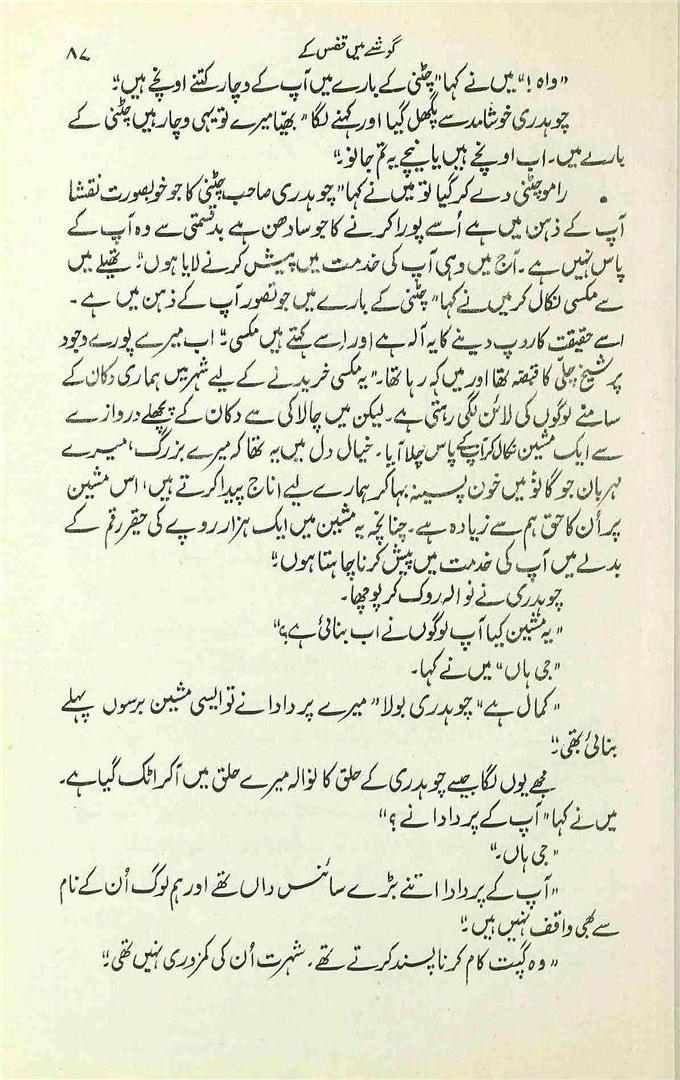 گوشے میں قفس کے ۸۷
"واہ!" میں نے کہا "چٹنی کے بارے میں آپ کے وچار کتنے اونچے ہیں۔"
چوہدری خوشامد سے پگھل گیا اور کہنے لگا "بھیّا میرے تو یہی وچار ہیں چٹنی کے
بارے میں۔ اب اونچے ہیں یا نیچے یہ تم جانو۔"
راموچٹنی دے کر گیا تو میں نے کہا "چوہدری صاحب چٹنی کا جو خوبصورت نقشا
آپ کے ذہن میں ہے اُسے پورا کرنے کا جو سادھن ہے بدقسمتی سے وہ آپ کے
پاس نہیں ہے۔ آج میں وہی آپ کی خدمت میں پیش کرنے لایا ہوں"۔ تھیلے میں
سے مکسی نکال کر میں نے کہا "چٹنی کے بارے میں جو تصور آپ کے ذہن میں ہے۔
اسے حقیقت کا روپ دینے کا یہ آلہ ہے اور اِسے کہتے ہیں مکسی۔" اب میرے پورے وجود
پر شیخ چلّی کا قبضہ تھا اور میں کہہ رہا تھا۔ "یہ مکسی خریدنے کے لیے شہر میں ہماری دکان کے
سامنے لوگوں کی لائن لگی رہتی ہے۔ لیکن میں چالاکی سے دکان کے پچھلے دروازے
سے ایک مشین نکال کر آپ کے پاس چلا آیا۔ خیال دل میں یہ تھا کہ میرے بزرگ، میرے
مہربان جو گانؤ میں خون پسینہ بہا کر ہمارے لیے اناج پیدا کرتے ہیں، اس مشین
پر اُن کا حق ہم سے زیادہ ہے۔ چنانچہ یہ مشین میں ایک ہزار روپے کی حقیر رقم کے
بدلے میں آپ کی خدمت میں پیش کرنا چاہتا ہوں۔"
چوہدری نے نوالہ روک کر پوچھا۔
"یہ مشین کیا آپ لوگوں نے اب بنائی ہے؟"
"جی ہاں" میں نے کہا۔
"کمال ہے" چوہدری بولا "میرے پردادا نے تو ایسی مشین برسوں پہلے
بنائی تھی۔"
مجھے یوں لگا جیسے چوہدری کے حلق کا نوالہ میرے حلق میں آکر اٹک گیا ہے۔
میں نے کہا "آپ کے پردادا نے؟"
"جی ہاں۔"
"آپ کے پردادا اتنے بڑے سائنس داں تھے اور ہم لوگ اُن کے نام
سے بھی واقف نہیں ہیں۔"
"وہ گپت کام کرنا پسند کرتے تھے۔ شہرت اُن کی کمزوری نہیں تھی۔"